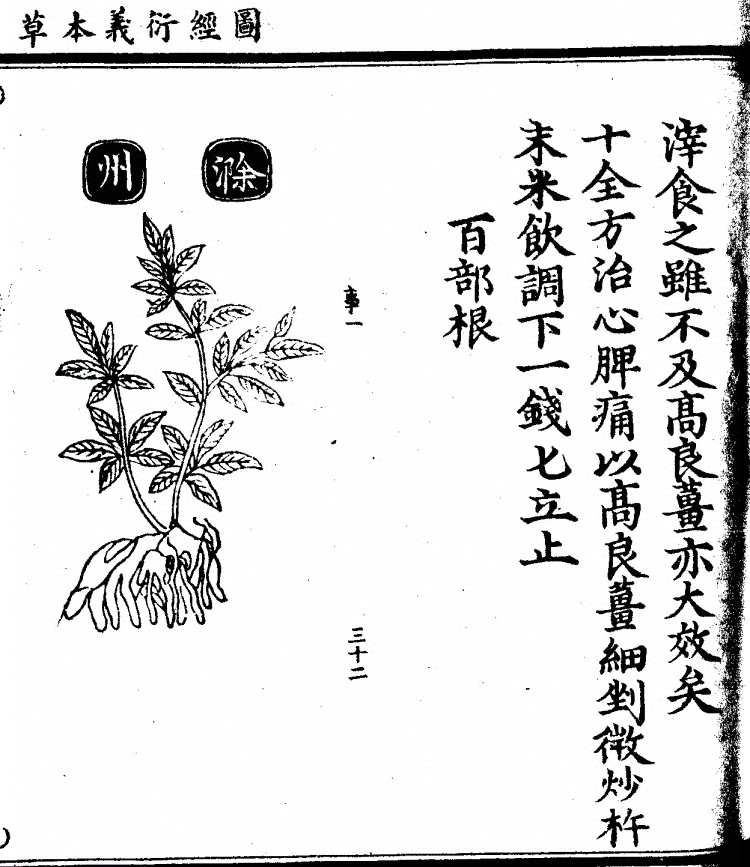 圖經衍義本草
滓食之雖不及髙良薑亦大效矣
十全方治心脾痛以髙良薑細剉微炒杵
末米飲調下一錢匕立止
百部根
事一
三十二
滁州